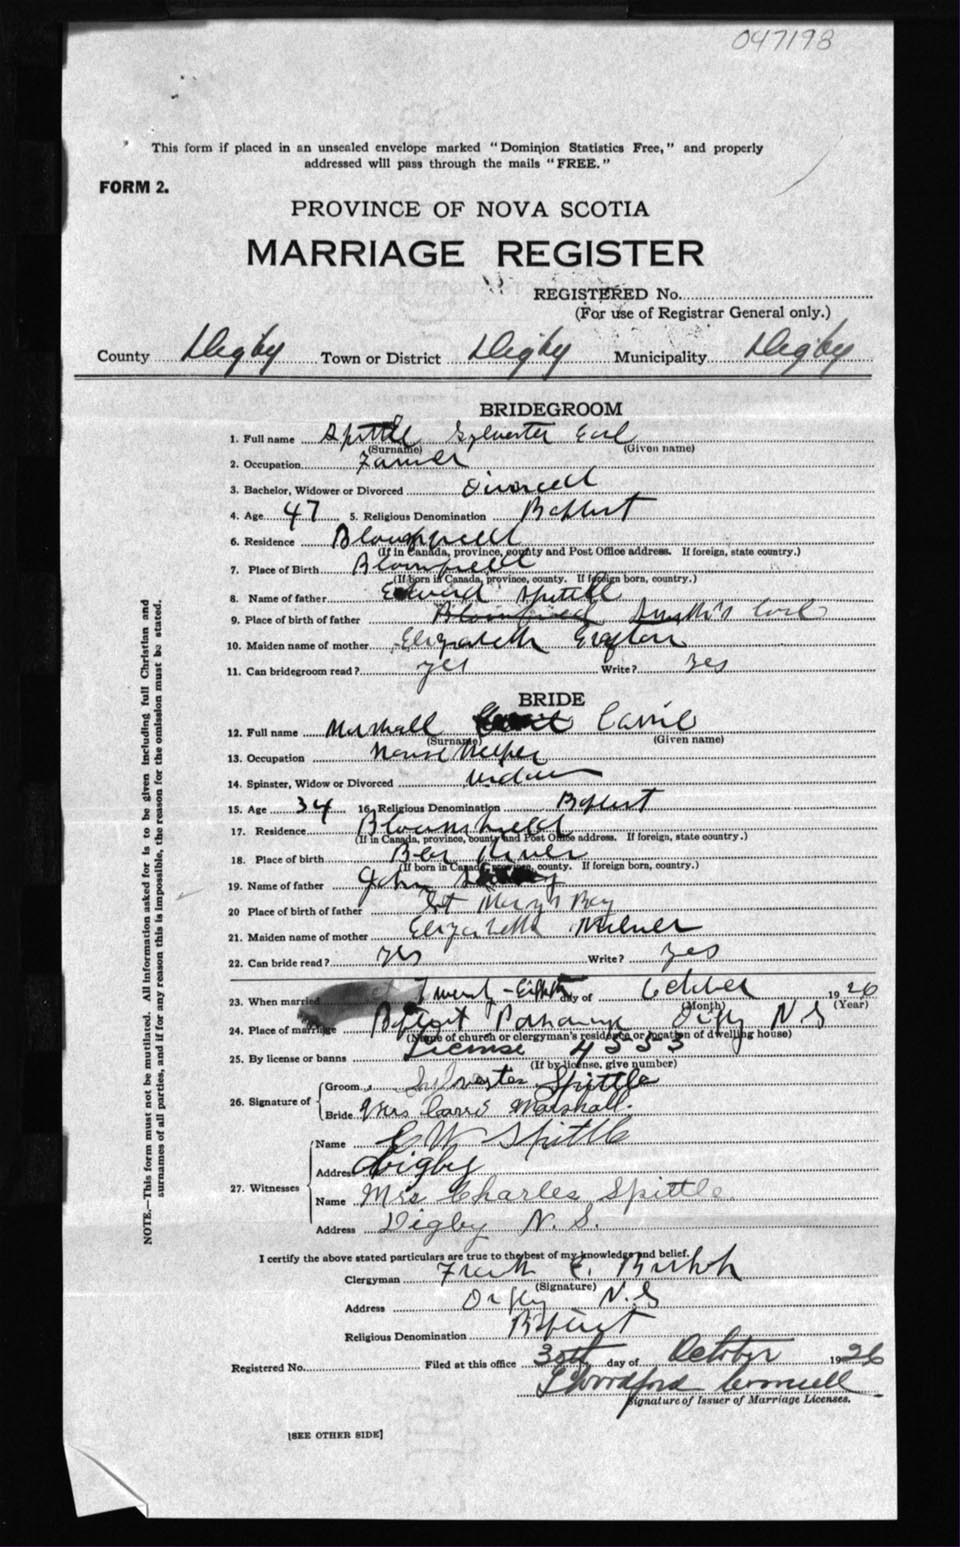 047193
This form if placed in an unsealed envelope marked "Dominion Statistics Free," and properly
addressed will pass through the mails "FREE."
FORM 2.
PROVINCE OF NOVA SCOTIA
MARRIAGE REGISTER
REGISTERED No.
(For use of Registrar General only.)
County Digby Town or District Digby Municipality Digby
BRIDEGROOM
1. Full name Spittle Sylvester Earl
(Surname) (Given name)
2. Occupation Farmer
3. Bachelor, Widower or Divorced Divorced
4. Age 47 5. Religious Denomination Baptist
6. Residence Bloomfield
(If in Canada, province, county and Post Office address. If foreign, state country.)
7. Place of Birth Bloomfield
(If born in Canada, province, county. If foreign born, country.)
8. Name of father Edward Spittle
9. Place of birth of father Bloomfield Smith's Cove
10. Maiden name of mother Elizabeth Grafton
11. Can bridegroom read? yes Write? Yes
BRIDE
12. Full name Marshall Carrie
(Surname) (Given name)
13. Occupation House Keeper
14. Spinster, Widow or Divorced Widow
15. Age 34 16. Religious Denomination Baptist
17. Residence Bloomfield
(If in Canada, province, county and Post Office address. If foreign, state country.)
18. Place of birth Bear River
(If born in Canada, province, county. If foreign born, country.)
19. Name of father John
20 Place of birth of father St Mary's Bay
21. Maiden name of mother Elizabeth Milner
22. Can bride read? yes Write? yes
23. When married Twenty-Eighth day of October 1926
(Month) (Year)
24. Place of marriage Baptist Parsonage Digby N S
(Name of church or clergyman's residence or location of dwelling house)
25. By license or banns License 4333
(If by license, give number)
26. Signature of Groom Sylvester Spittle
Bride Mrs Carrie Marshall.
27. Witnesses Name E W Spittle
Address Digby
Name Mrs Charles Spittle
Address Digby N. S.
I certify the above stated particulars are true to the best of my knowledge and belief.
Clergyman E.
(Signature)
Address Digby N.S
Religious Denomination Baptist
Registered No. Filed at this office 30th day of October 1926
Signature of Issuer of Marriage Licenses.
[SEE OTHER SIDE]
NOTE.—This form must not be mutilated. All information asked for is to be given including full Christian and
surnames of all parties, and if for any reason this is impossible, the reason for the omission must be stated.